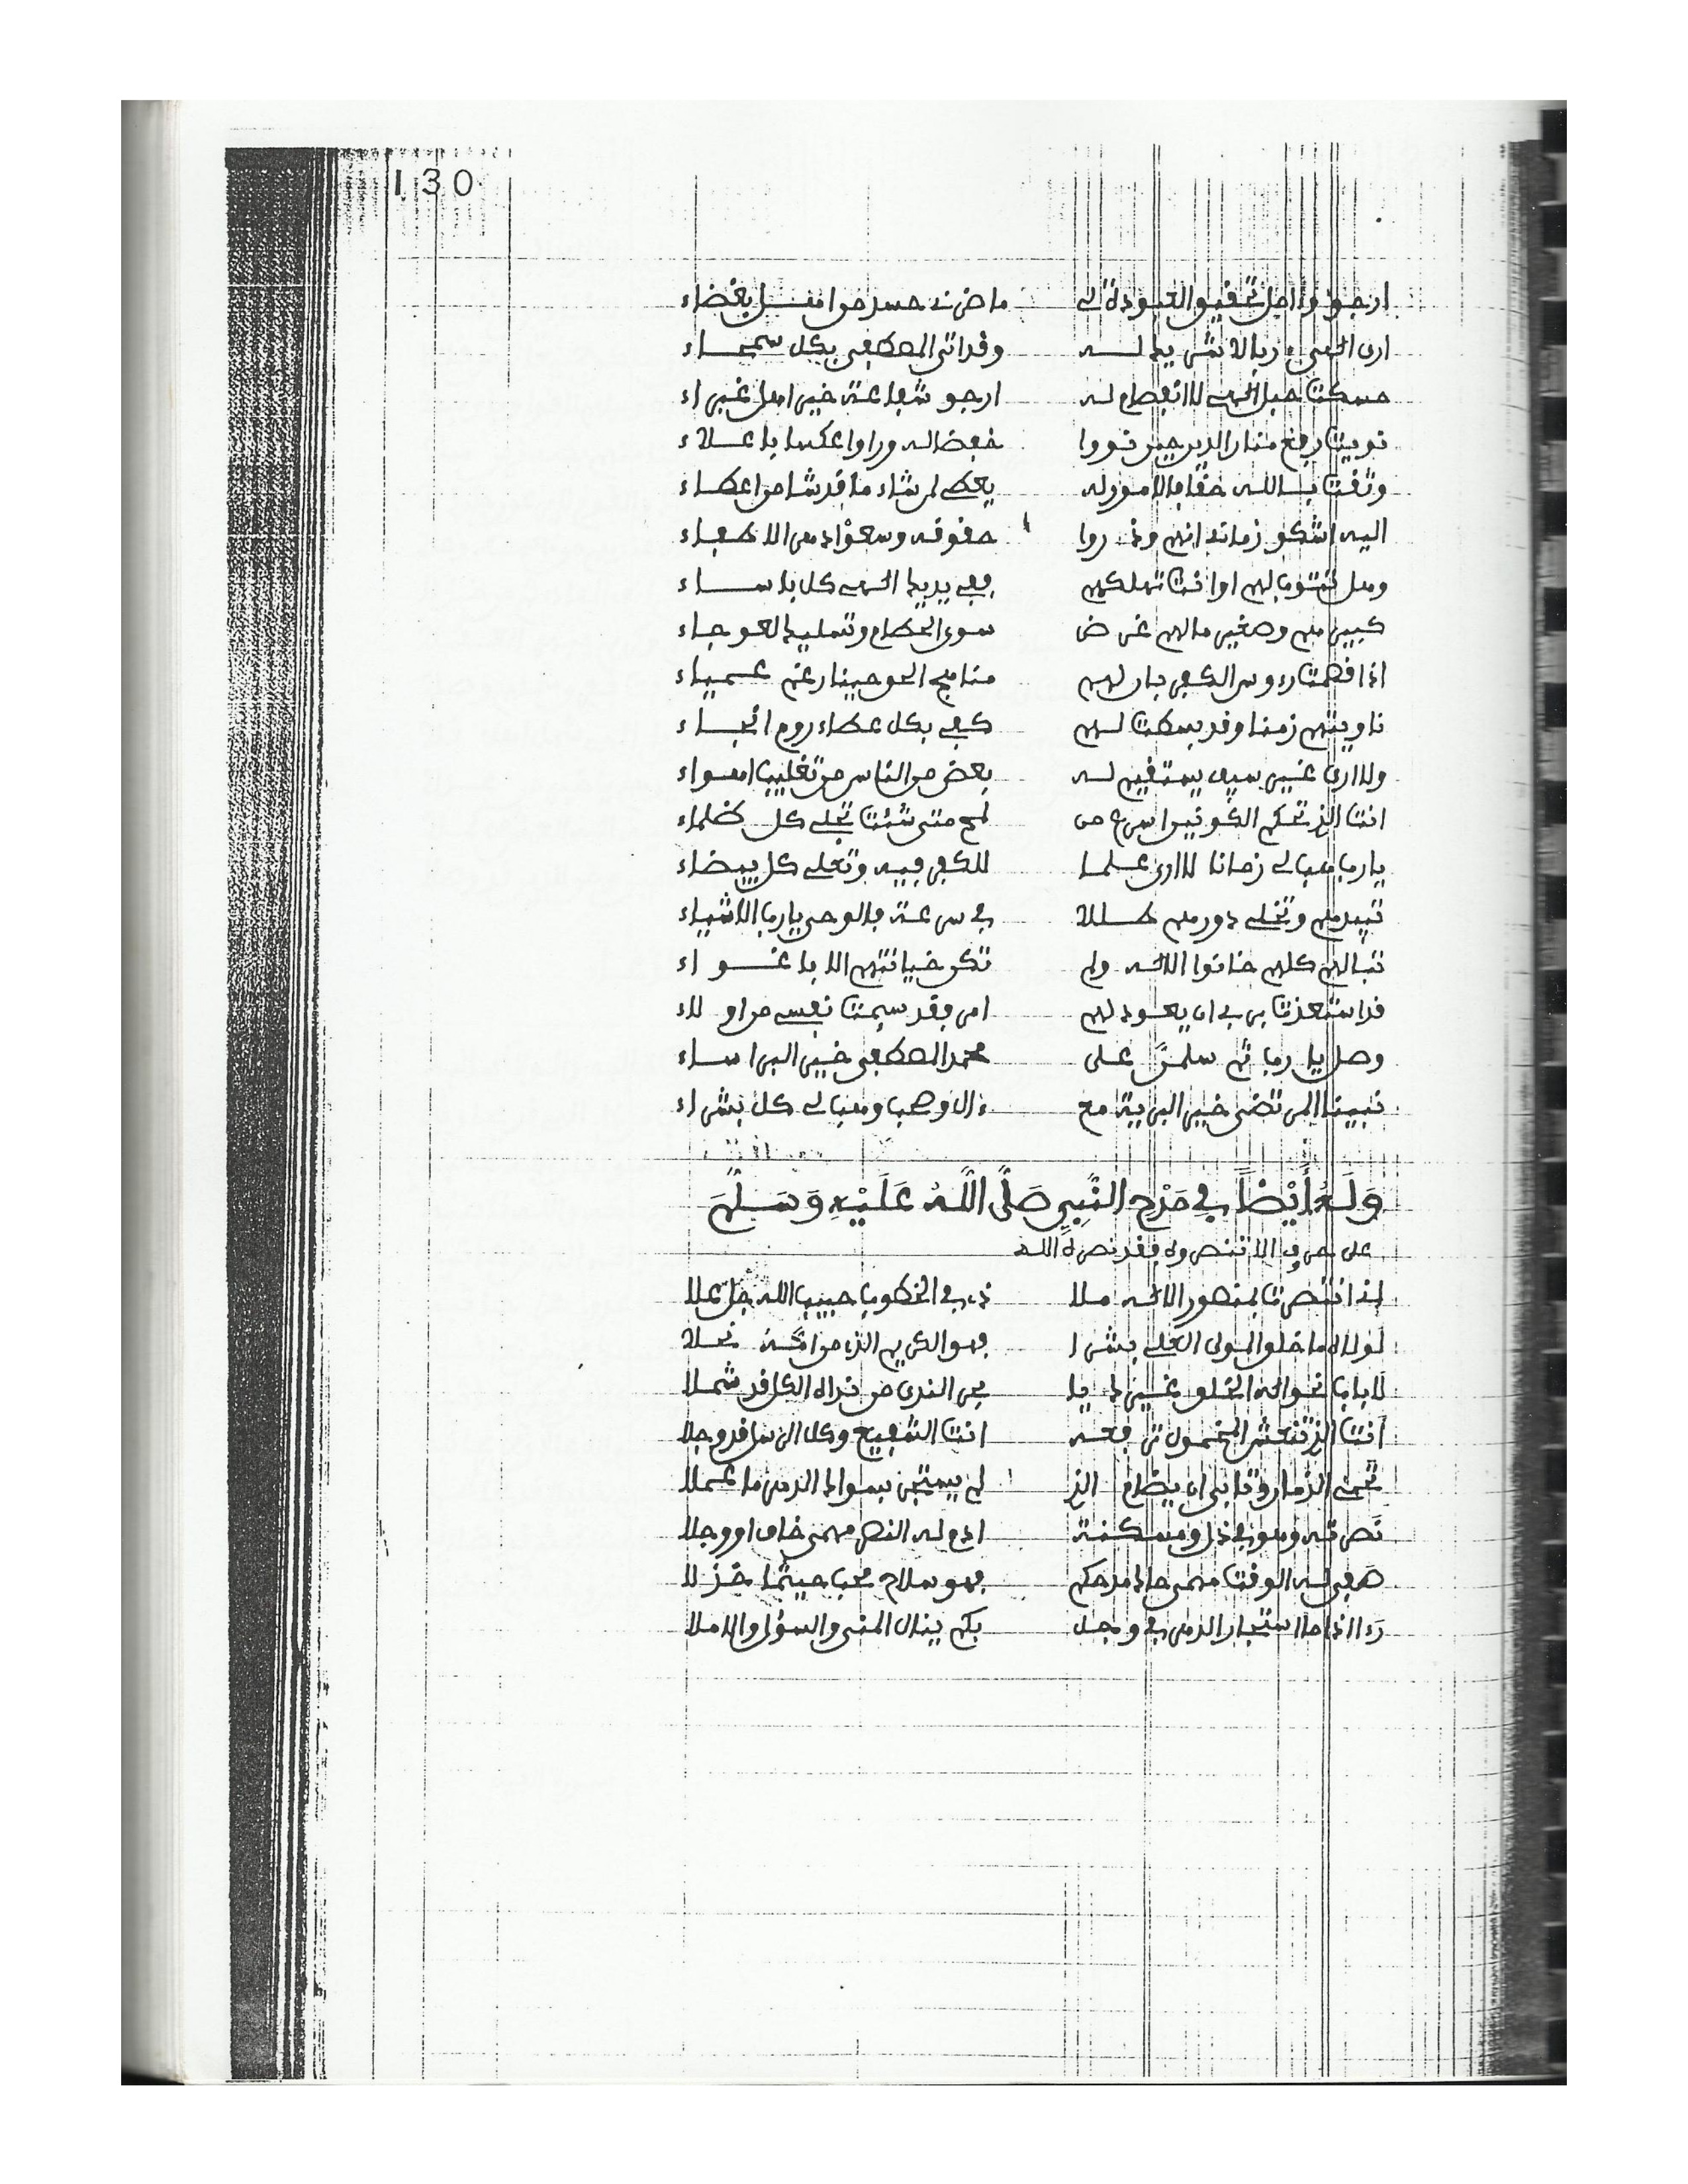 130
ارجو وءامل تحقيق العبودة لي ما ضرني حسد من اهل بغضاء
ارى النبي بلا شريك له وقد اتى المصطفى بكل سمحاء
مسكت حبل النبي لا انفصام له ارجو شفاعة خير اهل غبراء
نويت رفع منار الدين حين نووا خفضا له وراوا عكسا باعلاء
وثقت بالله حقا بالامور له يعطي لمن شاء ما قد شا من اعطاء
اليه اشكو زمانا انهم وذروا حقوقه وسعوا في الاطفاء
وهل تنوبا لهم او انت تملكهم ففي يديك النهى كل باساء
كبيرهم وصغير ما لهم غرض سوى الحطام وتمليك العوجاء
اذا فهمت رءوس الكفر بان لهم مناهج الحق حينا رغم عمياء
ناويتهم زمنا وقد بسطت لهم كفي بكل عطاء روم انجاء
ولا ارى غير سيف يستقيم له بعض من الناس من تغليب اهواء
انت الذي تحكم الكونين اسرع من لمح متى شئت تجلي كل ظلماء
يا رب هب لي زمانا لا ارى علما للكفر فيه وتعلي كل بيضاء
تبيدهم وتخلي دورهم طللا في سرعة بالوحى يا رب الاشياء
تبا لهم كلهم خانوا الاله ولم تكن خيانتهم الا باغواء
قد استعذت بربي ان يعود لهم امر فقد سيمت نفسي من اولاء
وصل يا رب ثم سلمن على محمد المصطفى خير البراساء
نبينا المرتضى خير البرية مع ءال وصحب وهب لي كل بشراء
وله أيضا في مدح النبي صلى الله عليه وسلم
على حروف الا تنصروه فقد نصره الله
إني انتصرت بمنصور الاله ملا ذي في الخطوب حبيب الله جل علا
لولاه ما خلق المولى العلي بشرا فهو الكريم الذي من امه نحلا
لا باب نحو اله الخلق غيرك يا بحر الندى من نداه الكل قد شملا
أنت الذي تنعش المخمول ترفعه انت الشفيع وكل الرسل قد وجلا
تحمي الذمار وتابى ان يضام الذي لم يستجر بسواك الدهر ما عملا
نصرته وهو في ذل ومسكنة ادم له النصر مهمى خاف او وجلا
صفى له الوقت مهمى حاك مدحكم فهو سلاح محب حيثما خذلا
رءا اذا ما استجار الدهر في وجل بكم ينال المنى والسؤل والاملا